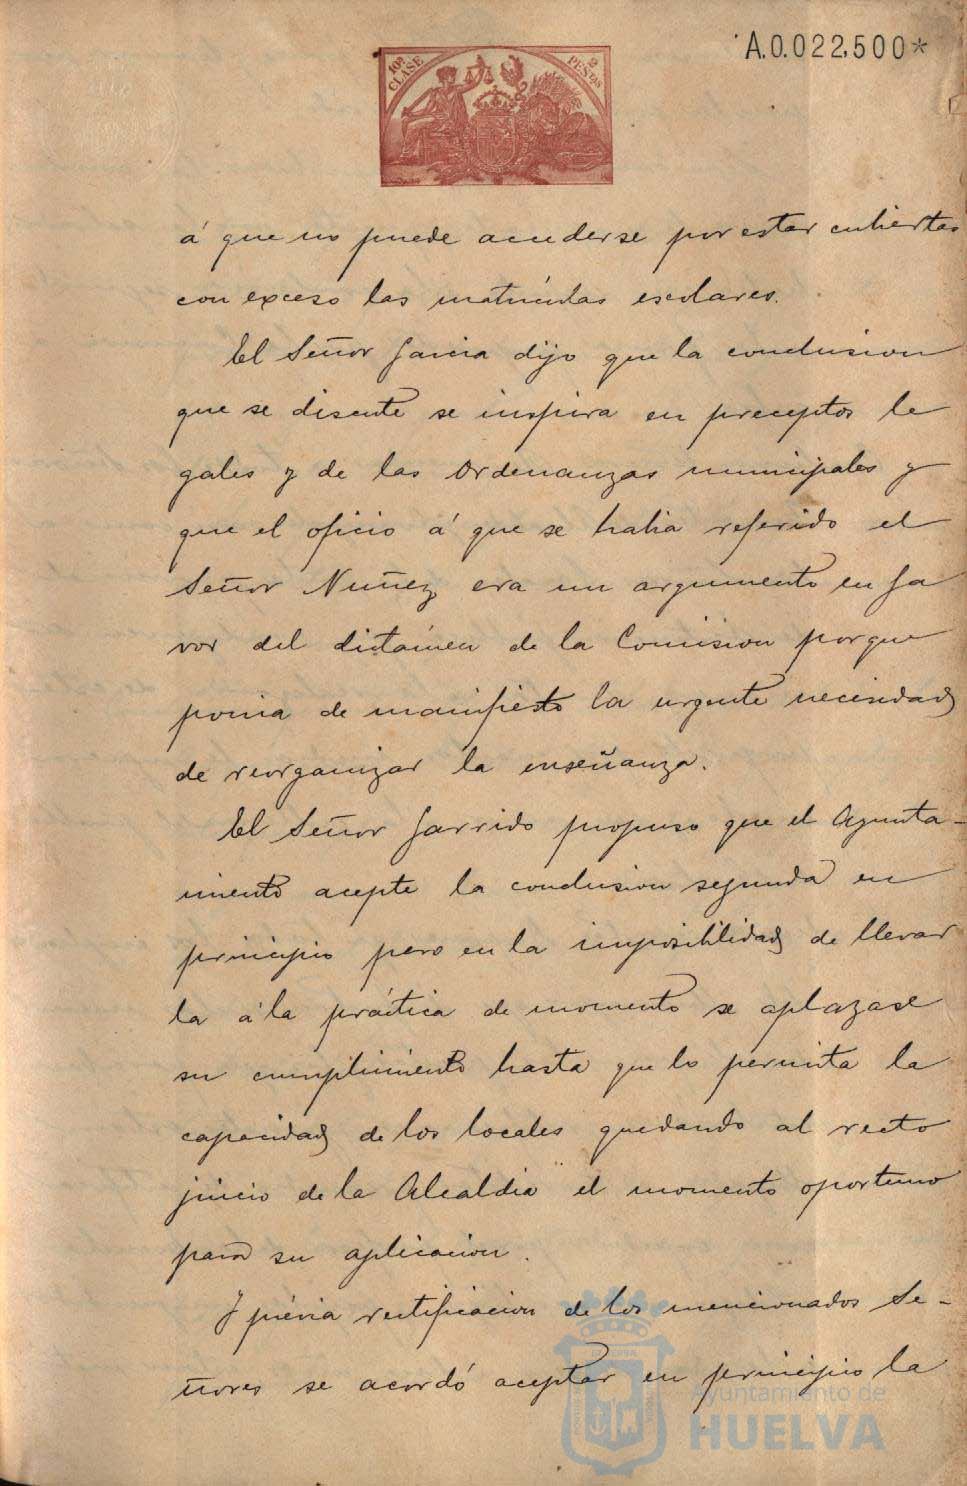 A.0.022,500*
10ª CLASE
2 PESETAS
á que no puede acuderse por estar cubiertas
con exceso las matrículas escolares.
El Señor Garcia dijo que la conclusion
que se discute se inspira en preceptos le
gales y de las Ordenanzas municipales y
que el oficio á que se habia referido el
Señor Nuñez era un argumento en fa
vor del dictámen de la Comision porque
ponia de manifiesto la urgente necesidad
de reorganizar la enseñanza.
El Señor Garrido propuso que el Ayunta-
miento acepte la conclusion segunda en
principio pero en la imposibilidad de llevar
la á la práctica de momento se aplazase
su cumplimiento hasta que lo permita la
capacidad de los locales quedando al recto
juicio de la Alcaldia el momento oportuno
para su aplicacion.
Y prévia rectificacion de los mencionados Se-
ñores se acordó aceptar en principio la
Ayuntamiento de
HUELVA